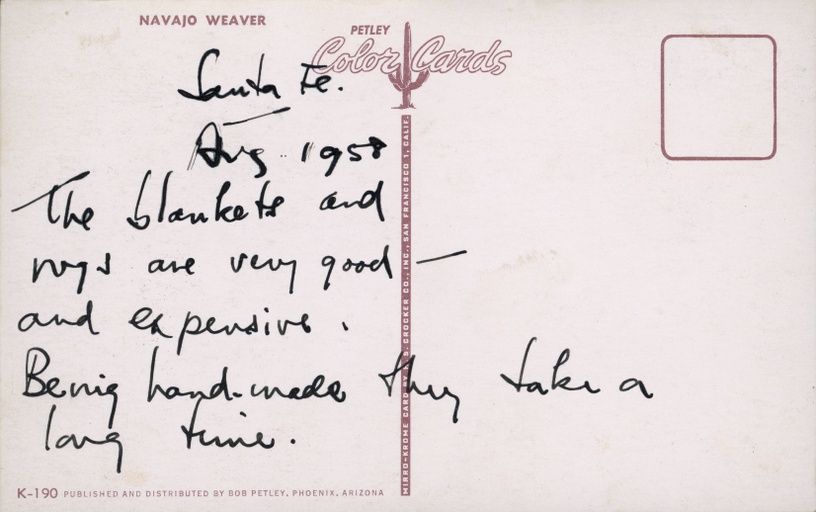 NAVAJO WEAVER
PETLEY
Color Cards
Santa Fe.
Aug 1958
The blankets and
rugs are very good —
and expensive.
Being hand-made they take a
long time.
MIRRO-KROME CARD BY H. S. CROCKER CO., INC., SAN FRANCISCO 1, CALIF.
K-190 PUBLISHED AND DISTRIBUTED BY BOB PETLEY, PHOENIX, ARIZONA